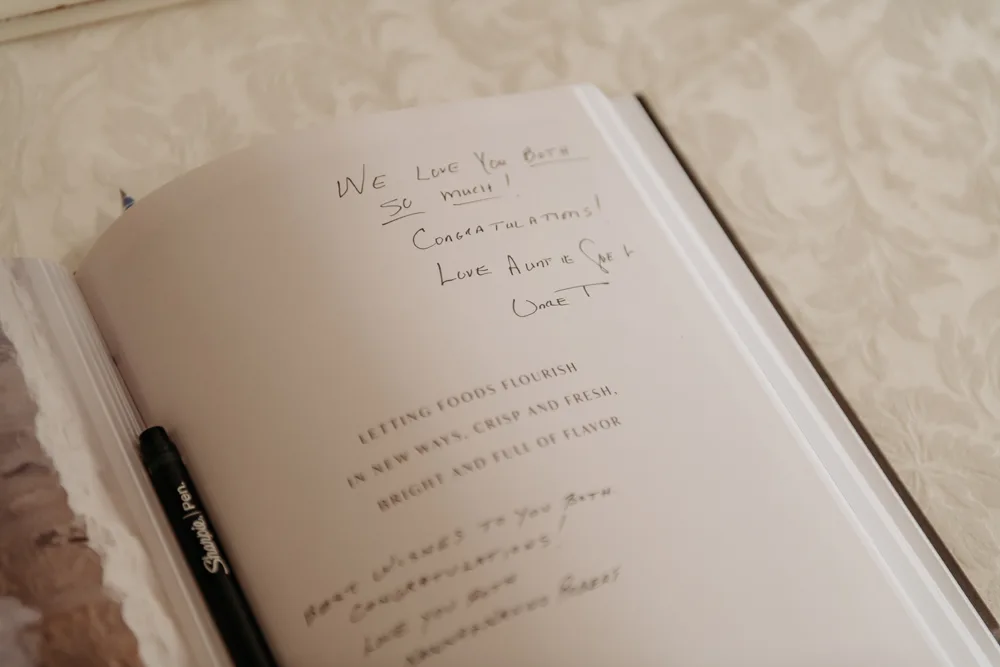 WE LOVE YOU BOTH
SO MUCH!
CONGRATULATIONS!
LOVE AUNTIE &
UNCLE T
LETTING FOODS FLOURISH
IN NEW WAYS, CRISP AND FRESH,
BRIGHT AND FULL OF FLAVOR
BEST WISHES TO YOU BOTH
CONGRATULATIONS!
LOVE YOU BOTH
ROBERT
Sharpie | Pen.